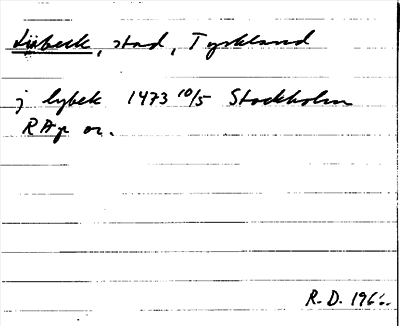 Lübeck, stad, Tyskland
j lybek 1473 10/5 Stockholm
RAp or.
R.D. 1966.